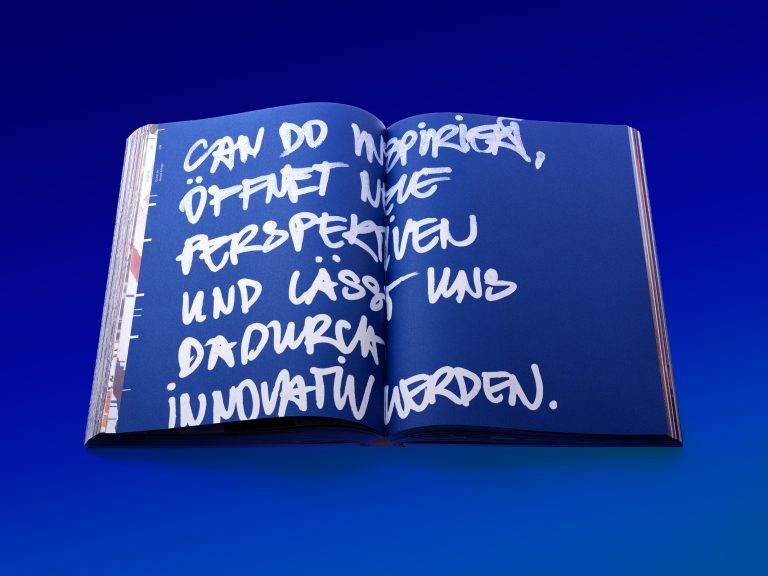 CAN DO INSPIRIERT,
ÖFFNET NEUE
PERSPEKTIVEN
UND LÄSST UNS
DADURCH
INNOVATIV WERDEN.